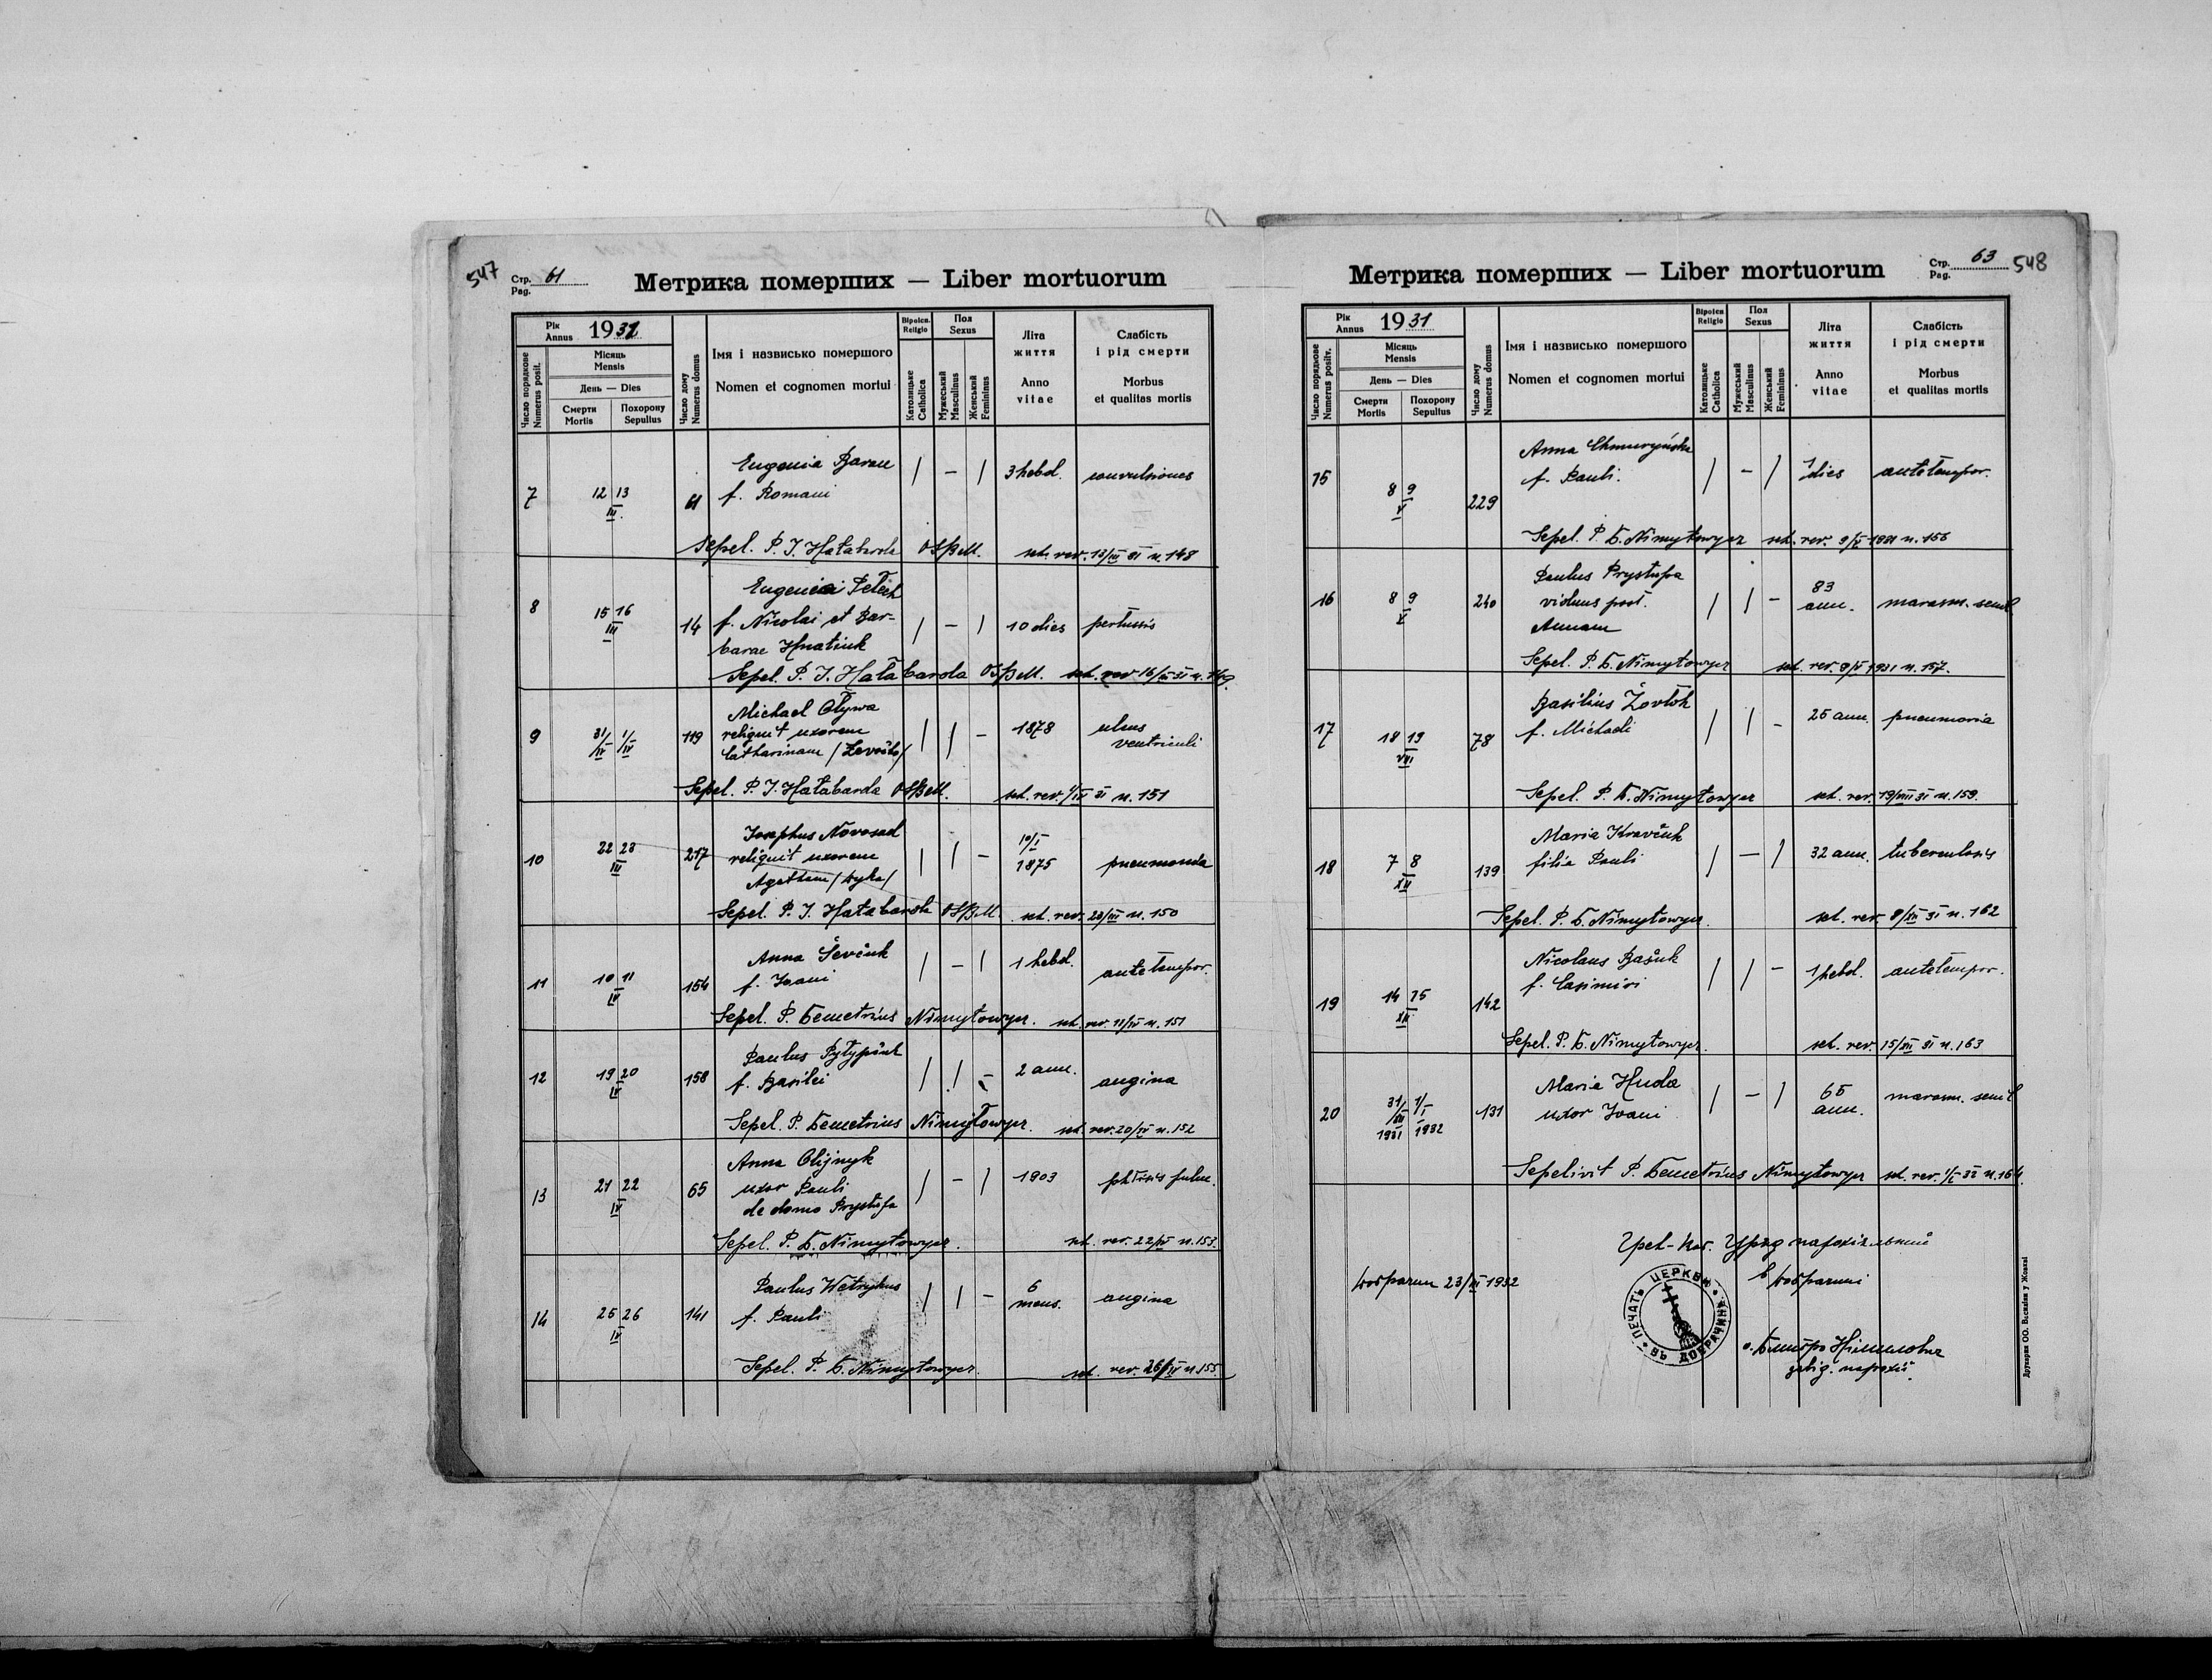 547
Стр. 61
Pag.
Метрика померших — Liber mortuorum
Рік
Annus 1931
Число порядкове
Numerus posit.
Місяць
Mensis
День — Dies
Смерти
Mortis
Похорону
Sepultus
Число дому
Numerus domus
Імя і назвисько помершого
Nomen et cognomen mortui
Віроісп.
Religio
Католицьке
Catholica
Пол
Sexus
Мужеський
Masculinus
Женський
Femininus
Літа
життя
Anno
vitae
Слабість
і рід смерти
Morbus
et qualitas mortis
7 12 13 III. 61 Eugenia Baran / — / 3 hebd. convulsiones
f. Romani
Sepel. P. J. Hałabarda OSBM. sch. rev. 13/III 31 n. 148
8 15 16 III 14 Eugenia Petech
f. Nicolai et Bar- / — / 10 dies pertussis
barae Hnatiuk
Sepel. P. J. Hałabarda OSBM. sch. rev 16/III 31 n. 149.
9 31/III 1/IV 119 Michael Oływa / / — 1878 ulcus
reliquit uxorem ventriculi
Catharinam
Sepel. P. J. Hałabarda OSBM. sch. rev. 1/IV 31 n. 151
10 22 23 III 217 Josephus Novosad / / — 10/I 1875 pneumonia
reliquit uxorem
Agatham /Dyka/
Sepel. P. J. Hałabarda OSBM. sch. rev. 23/III n. 150
11 10 11 IV 154 Anna Ševčuk / — / 1 hebd. antetempor.
f. Ivani
Sepel. P. Demetrius Nimyłowycz. sch. rev. 11/IV n. 151
12 19 20 IV 158 Paulus Pyłypčuk / / — 2 ann. angina
f. Basilei
Sepel. P. Demetrius Nimyłowycz. sch. rev. 20/IV n. 152
13 21 22 IV 65 Anna Olijnyk / — / 1903 phtisis pulm.
uxor Pauli
de domo Prystupa
Sepel. P. D. Nimyłowycz. sch. rev. 22/IV n. 153.
14 25 26 IV 141 Paulus Wetrykus / / — 6 mens. angina
f. Pauli
Sepel. P. D. Nimyłowycz. sch. rev. 26/IV n. 155.
Стр. 63
Pag.
548
Метрика померших — Liber mortuorum
Рік
Annus 1931
Число порядкове
Numerus positv.
Місяць
Mensis
День — Dies
Смерти
Mortis
Похорону
Sepultus
Число дому
Numerus domus
Імя і назвисько помершого
Nomen et cognomen mortui
Віроісп
Religio
Католицьке
Catholica
Пол
Sexus
Мужеський
Masculinus
Женський
Femininus
Літа
життя
Anno
vitae
Слабість
і рід смерти
Morbus
et qualitas mortis
15 8 9 V 229 Anna Chmuryńska / — / 1 dies antetempor.
f. Pauli.
Sepel. P. D. Nimyłowycz sch. rev. 9/V 1931 n. 156
16 8 9 V 240 Paulus Prystupa / / — 83 ann. marasm. senil
viduus post.
Annam
Sepel. P. D. Nimyłowycz sch. rev. 9/V 1931 n. 157.
17 18 19 VIII 78 Basilius Žovtoh / / — 25 ann. pneumonia
f. Michaeli
Sepel. P. D. Nimyłowycz sch. rev. 19/VIII 31 n. 159.
18 7 8 XII 139 Maria Kravčuk / — / 32 ann. tuberculosis
filia Pauli
Sepel. P. D. Nimyłowycz. sch. rev. 8/XII 31 n. 162
19 14 15 XII 142 Nicolaus Bašuk / / — 1 hebd. antetempor.
f. Casimiri
Sepel. P. D. Nimyłowycz. sch. rev. 15/XII 31 n. 163
20 31/XII 1931 1/I 1932 131 Maria Huda / — / 65 ann. marasm. senil
uxor Ivani
Sepelivit P. Demetrius Nimyłowycz sch. rev. 1/I 32 n. 164.
Грек-кат. Уряд парохіяльний
в Добрачині
Добрачин 23/III 1932
ПЕЧАТЬ ЦЕРКВИ ВЪ ДОБРАЧИНѢ
о. Дмитро Нимилович
завід. парохії.
Друкарня ОО. Василіян у Жовкві